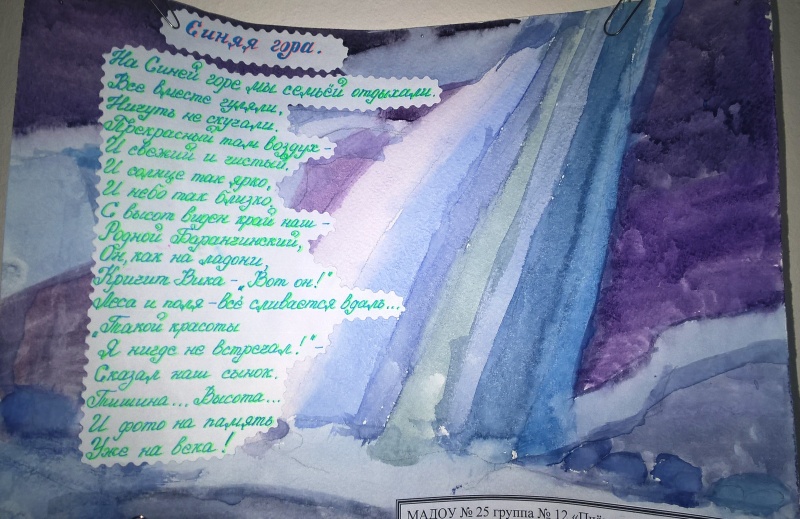 Синяя гора.
На Синей горе мы семьёй отдыхали.
Все вместе гуляли,
Ничуть не скучали.
Прекрасный там воздух -
И свежий и чистый,
И солнце так ярко,
И небо так близко,
С высот виден край наш -
Родной Баранчинский,
Он, как на ладони,
Кричит Вика - „Вот он!"
Леса и поля - всё сливается вдаль...
„Такой красоты
Я нигде не встречал!" -
Сказал наш сынок.
Тишина... Высота...
И фото на память
Уже на века!
МАДОУ № 25 группа № 12